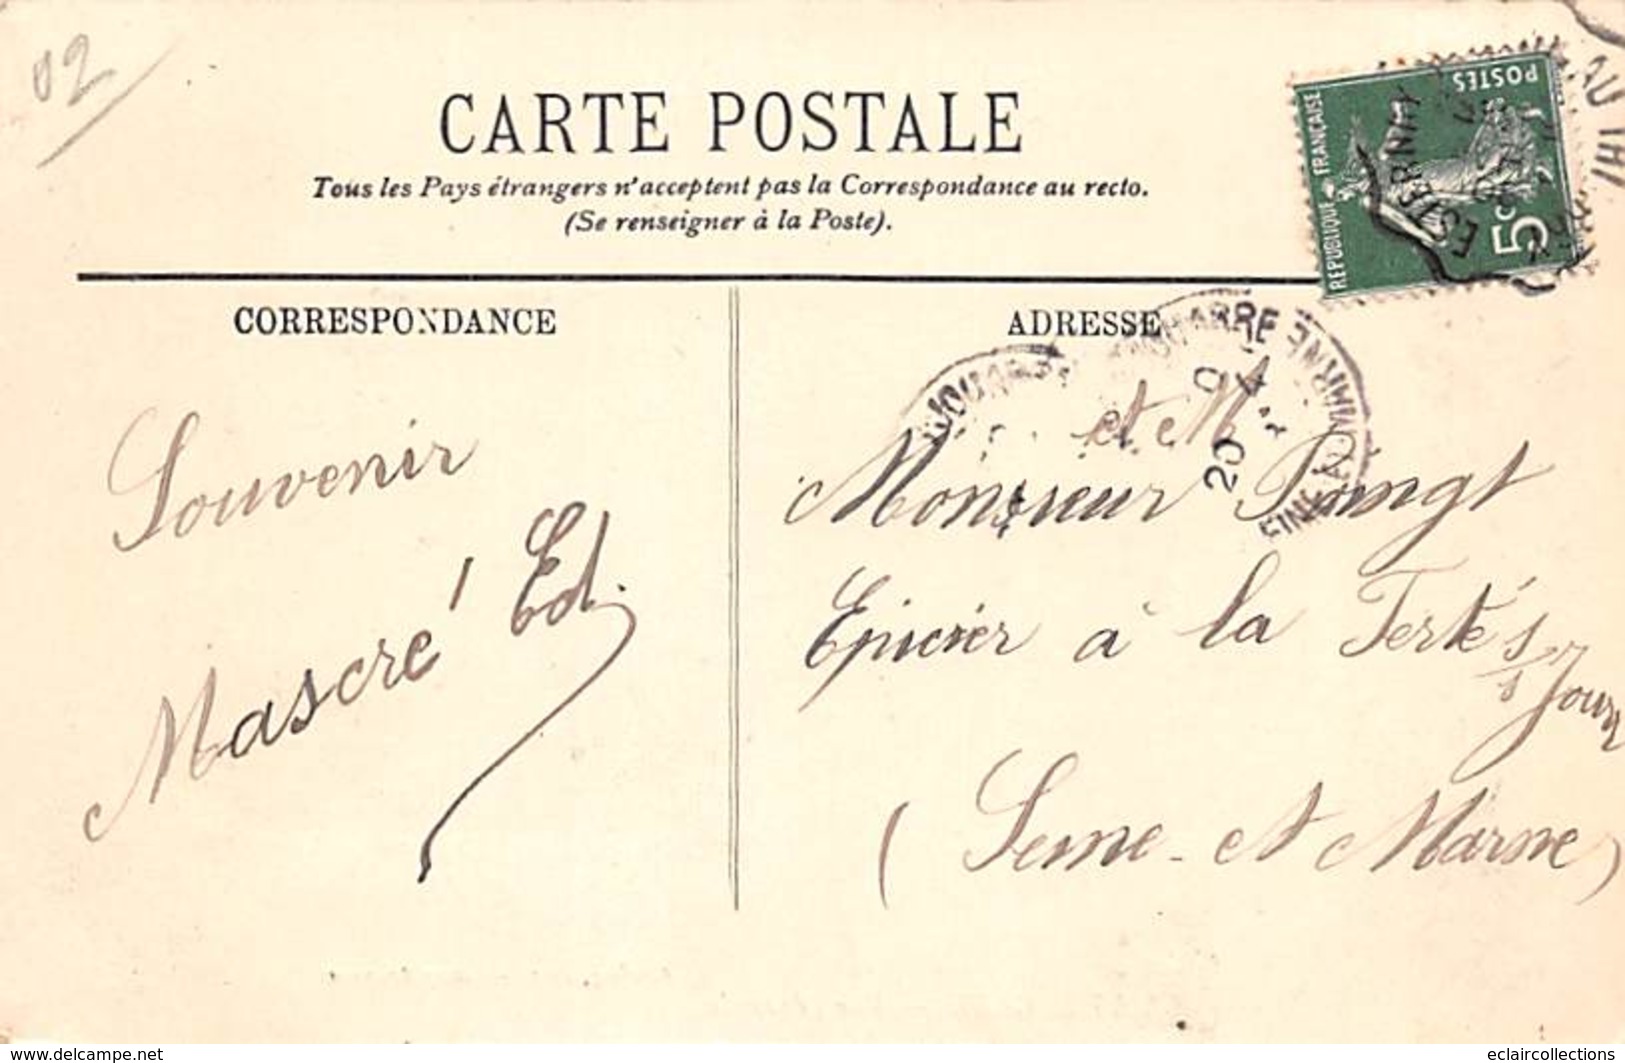 02
CARTE POSTALE
Tous les Pays étrangers n'acceptent pas la Correspondance au recto.
(Se renseigner à la Poste).
POSTES
REPUBLIQUE FRANCAISE
5c
ESTERNAY
AU THI
CORRESPONDANCE
ADRESSE
JOUARRE
JOUARRE
SEINE-ET-MARNE
20
Souvenir
Mascré Ed.
et M
Monsieur Poingt
Epicier à la Ferté s/s Jouarre
(Seine-et Marne)
www.delcampe.net
eclaircollections